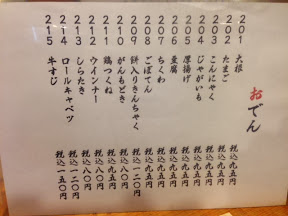 おでん
201 大根 税込九五円
202 たまご 税込九五円
203 こんにゃく 税込九五円
204 じゃがいも 税込九五円
205 厚揚げ 税込九五円
206 豆腐 税込九五円
207 ちくわ 税込九五円
208 ごぼてん 税込九五円
209 餅入りきんちゃく 税込一二〇円
210 がんもどき 税込九五円
211 鶏つくね 税込九五円
212 ウインナー 税込
213 しらたき 税込八〇円
214 ロールキャベツ 税込一二〇円
215 牛すじ 税込一五〇円